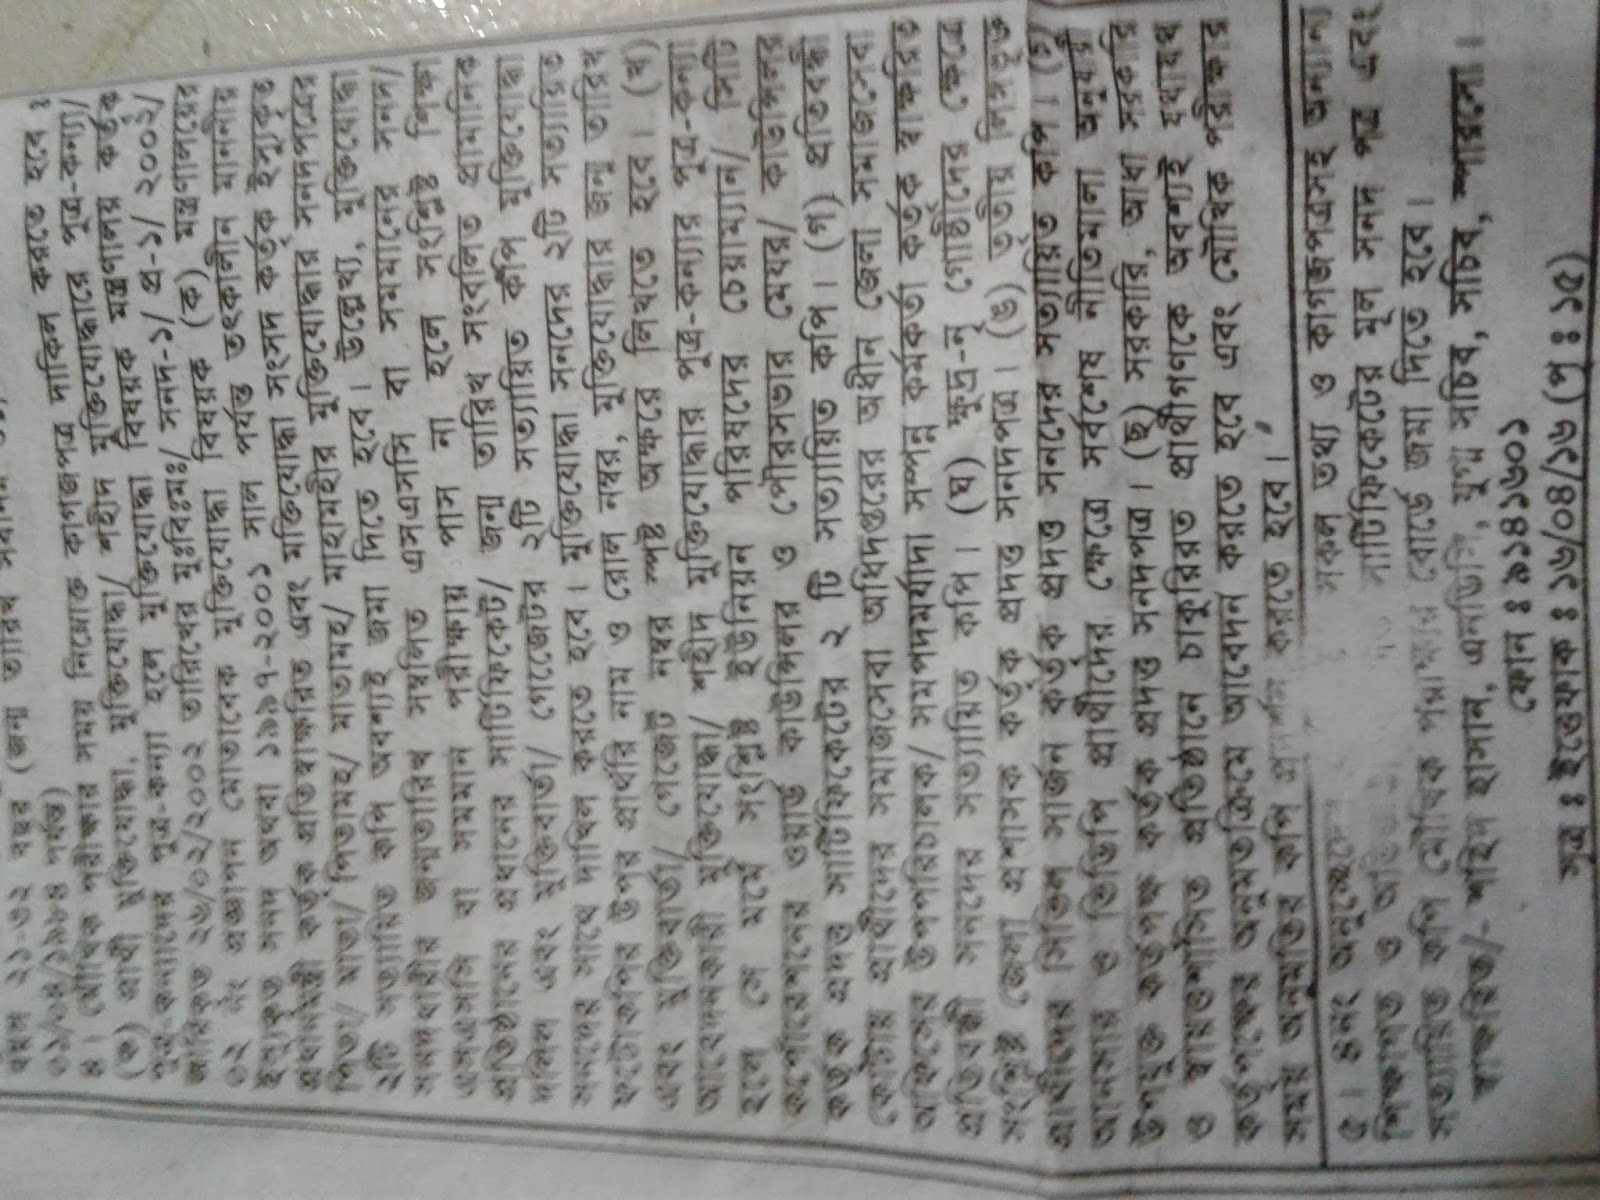 ৪। মৌখিক পরীক্ষার সময় নিম্নোক্ত কাগজপত্র দাখিল করতে হবে :
(ক) প্রার্থী মুক্তিযোদ্ধা/ শহীদ মুক্তিযোদ্ধাদের পুত্র-কন্যা/
পুত্র-কন্যাদের পুত্র-কন্যা হলে মুক্তিযোদ্ধা বিষয়ক মন্ত্রণালয় কর্তৃক
জারিকৃত ২৮/০২/২০০২ তারিখের মুঃবিঃমঃ/ সনদ-১/ প্র-১/ ২০০২/
ইস্যুকৃত সনদ অথবা ১৯৯৭-২০০১ সাল পর্যন্ত তৎকালীন মাননীয়
প্রধানমন্ত্রী কর্তৃক প্রতিস্বাক্ষরিত এবং মুক্তিযোদ্ধা সংসদ কর্তৃক ইস্যুকৃত
পিতা/ মাতা/ পিতামহ/ মাতামহ/ মাতামহীর মুক্তিযোদ্ধার সনদপত্রের
২টি সত্যায়িত কপি অবশ্যই জমা দিতে হবে। উল্লেখ্য, মুক্তিযোদ্ধা
সনদধারীর জন্মতারিখ সম্বলিত এসএসসি বা সমমানের সনদ/
এসএসসি বা সমমান পরীক্ষায় পাস না হলে সংশ্লিষ্ট শিক্ষা
প্রতিষ্ঠানের প্রধানের সার্টিফিকেট/ জন্ম তারিখ সংবলিত প্রামাণিক
দলিল এবং মুক্তিবার্তা/ গেজেটের ২টি সত্যায়িত কপি মুক্তিযোদ্ধা
সনদের সাথে দাখিল করতে হবে। মুক্তিযোদ্ধা সনদের ২টি সত্যায়িত
ফটোকপির উপর প্রার্থীর নাম ও রোল নম্বর, মুক্তিযোদ্ধার জন্ম তারিখ
এবং মুক্তিবার্তা/ গেজেট নম্বর স্পষ্ট অক্ষরে লিখতে হবে। (খ)
আবেদনকারী মুক্তিযোদ্ধা/ শহীদ মুক্তিযোদ্ধার পুত্র-কন্যার পুত্র-কন্যা
হলে সে মর্মে সংশ্লিষ্ট ইউনিয়ন পরিষদের চেয়ারম্যান/ সিটি
কর্পোরেশনের ওয়ার্ড কাউন্সিলর ও পৌরসভার মেয়র/ কাউন্সিলর
কর্তৃক প্রদত্ত সার্টিফিকেটের ২ টি সত্যায়িত কপি। (গ) প্রতিবন্ধী
কোটার প্রার্থীদের সমাজসেবা অধিদপ্তরের অধীন জেলা সমাজসেবা
অফিসের উপপরিচালক/ সমপদমর্যাদা সম্পন্ন কর্মকর্তা কর্তৃক স্বাক্ষরিত
প্রতিবন্ধী সনদের সত্যায়িত কপি। (ঘ) ক্ষুদ্র-নৃ গোষ্ঠীদের ক্ষেত্রে
সংশ্লিষ্ট জেলা প্রশাসক কর্তৃক প্রদত্ত সনদপত্র। (ঙ) তৃতীয় লিঙ্গভুক্ত
প্রার্থীদের সিভিল সার্জন কর্তৃক প্রদত্ত সনদের সত্যায়িত কপি। (চ)
আনসার ও ভিডিপি প্রার্থীদের ক্ষেত্রে সর্বশেষ নীতিমালা অনুযায়ী
উপযুক্ত কর্তৃপক্ষ কর্তৃক প্রদত্ত সনদপত্র। (ছ) সরকারি, আধা সরকারি
ও স্বায়ত্তশাসিত প্রতিষ্ঠানে চাকুরিরত প্রার্থীগণকে অবশ্যই যথাযথ
কর্তৃপক্ষের অনুমতিক্রমে আবেদন করতে হবে এবং মৌখিক পরীক্ষার
সময় অনুমতির কপি প্রদর্শন করতে হবে।
সকল তথ্য ও কাগজপত্রসহ অন্যান্য
সার্টিফিকেটের মূল সনদ পত্র এবং
সত্যায়িত কপি মৌখিক পরীক্ষার বোর্ডে জমা দিতে হবে।
স্বাক্ষরিত/- শাহিন হাসান, এনডিসি, যুগ্ম সচিব, সচিব, স্পারসো।
ফোন : ৯১৪১৬০১
সূত্র : ইত্তেফাক : ১৮/০৪/১৮ (পৃ : ১৫)